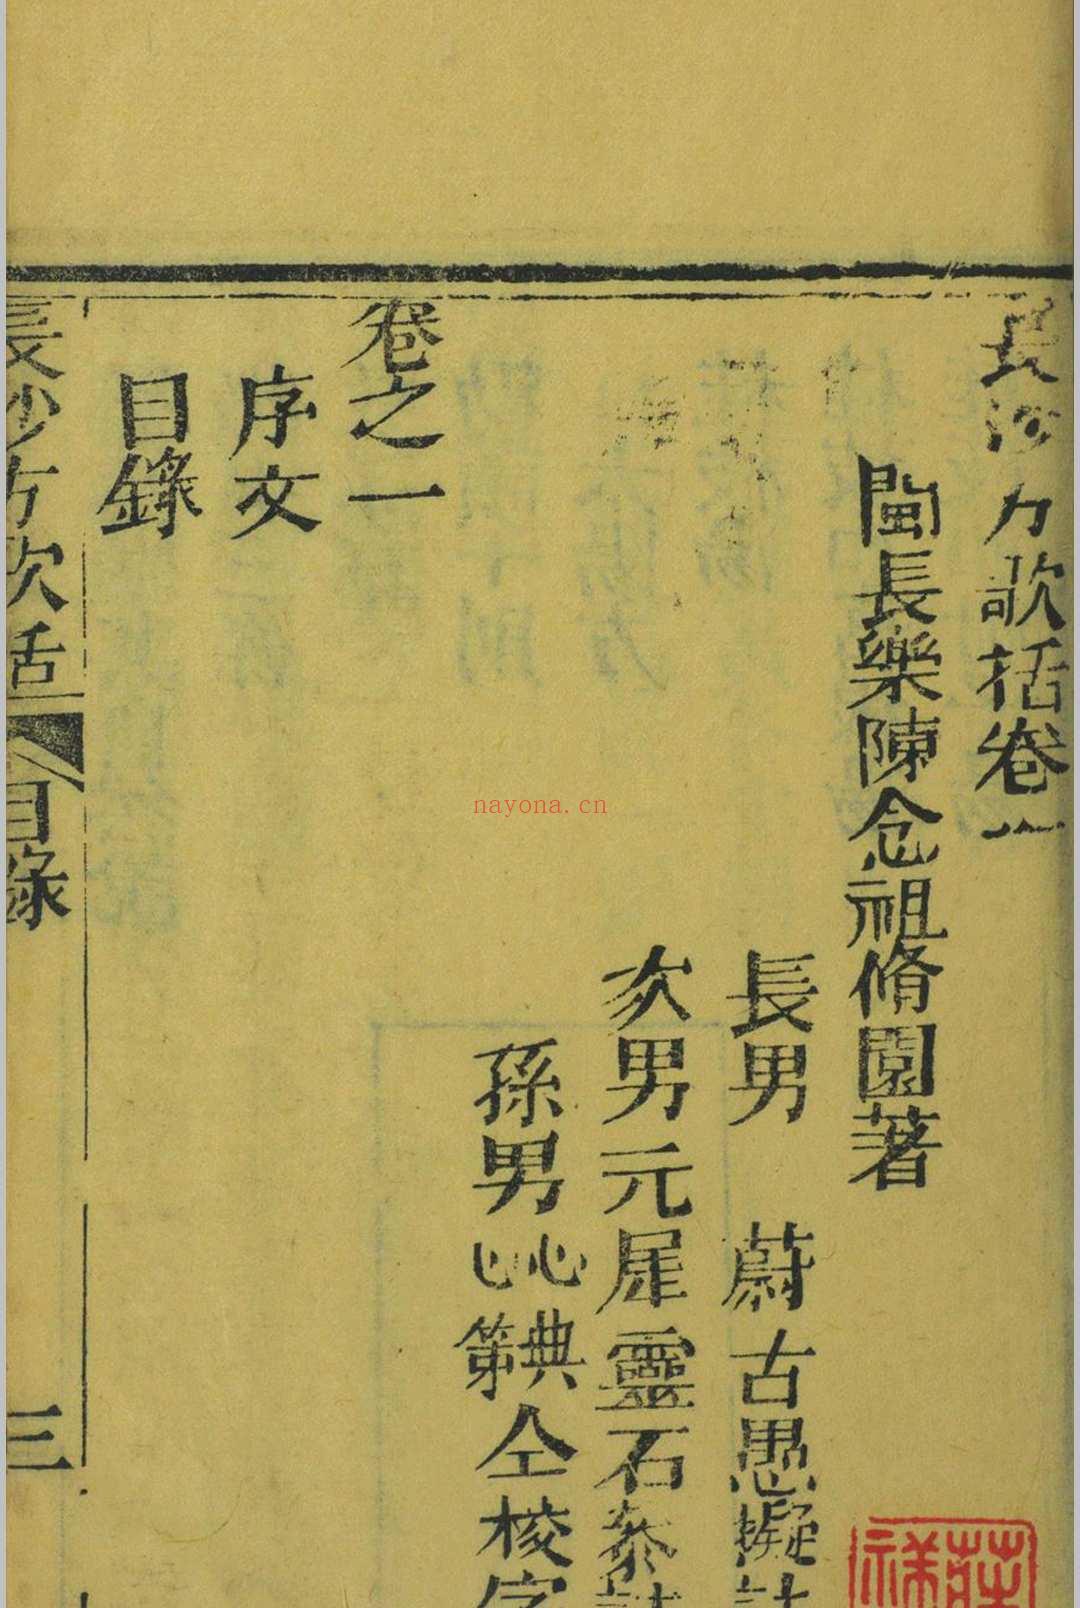 長沙方歌括卷一
閩長樂陳念祖脩園著
長男 蔚古愚擬註
次男元犀靈石叅註
孫男心典心第仝校字
卷之一
序文
目錄
長沙方歌括 目錄 三
nayona.cn